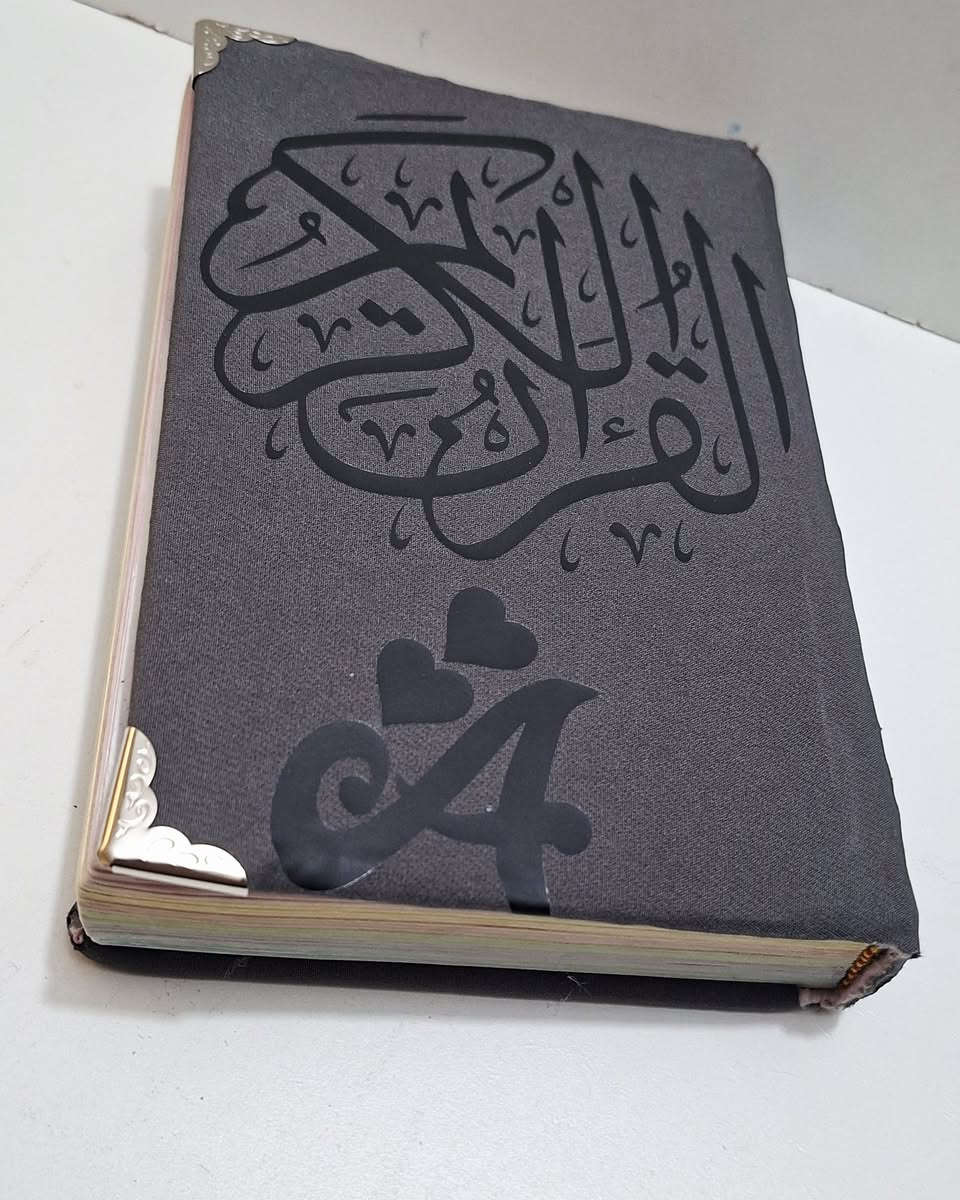 القرآن الكريم
A